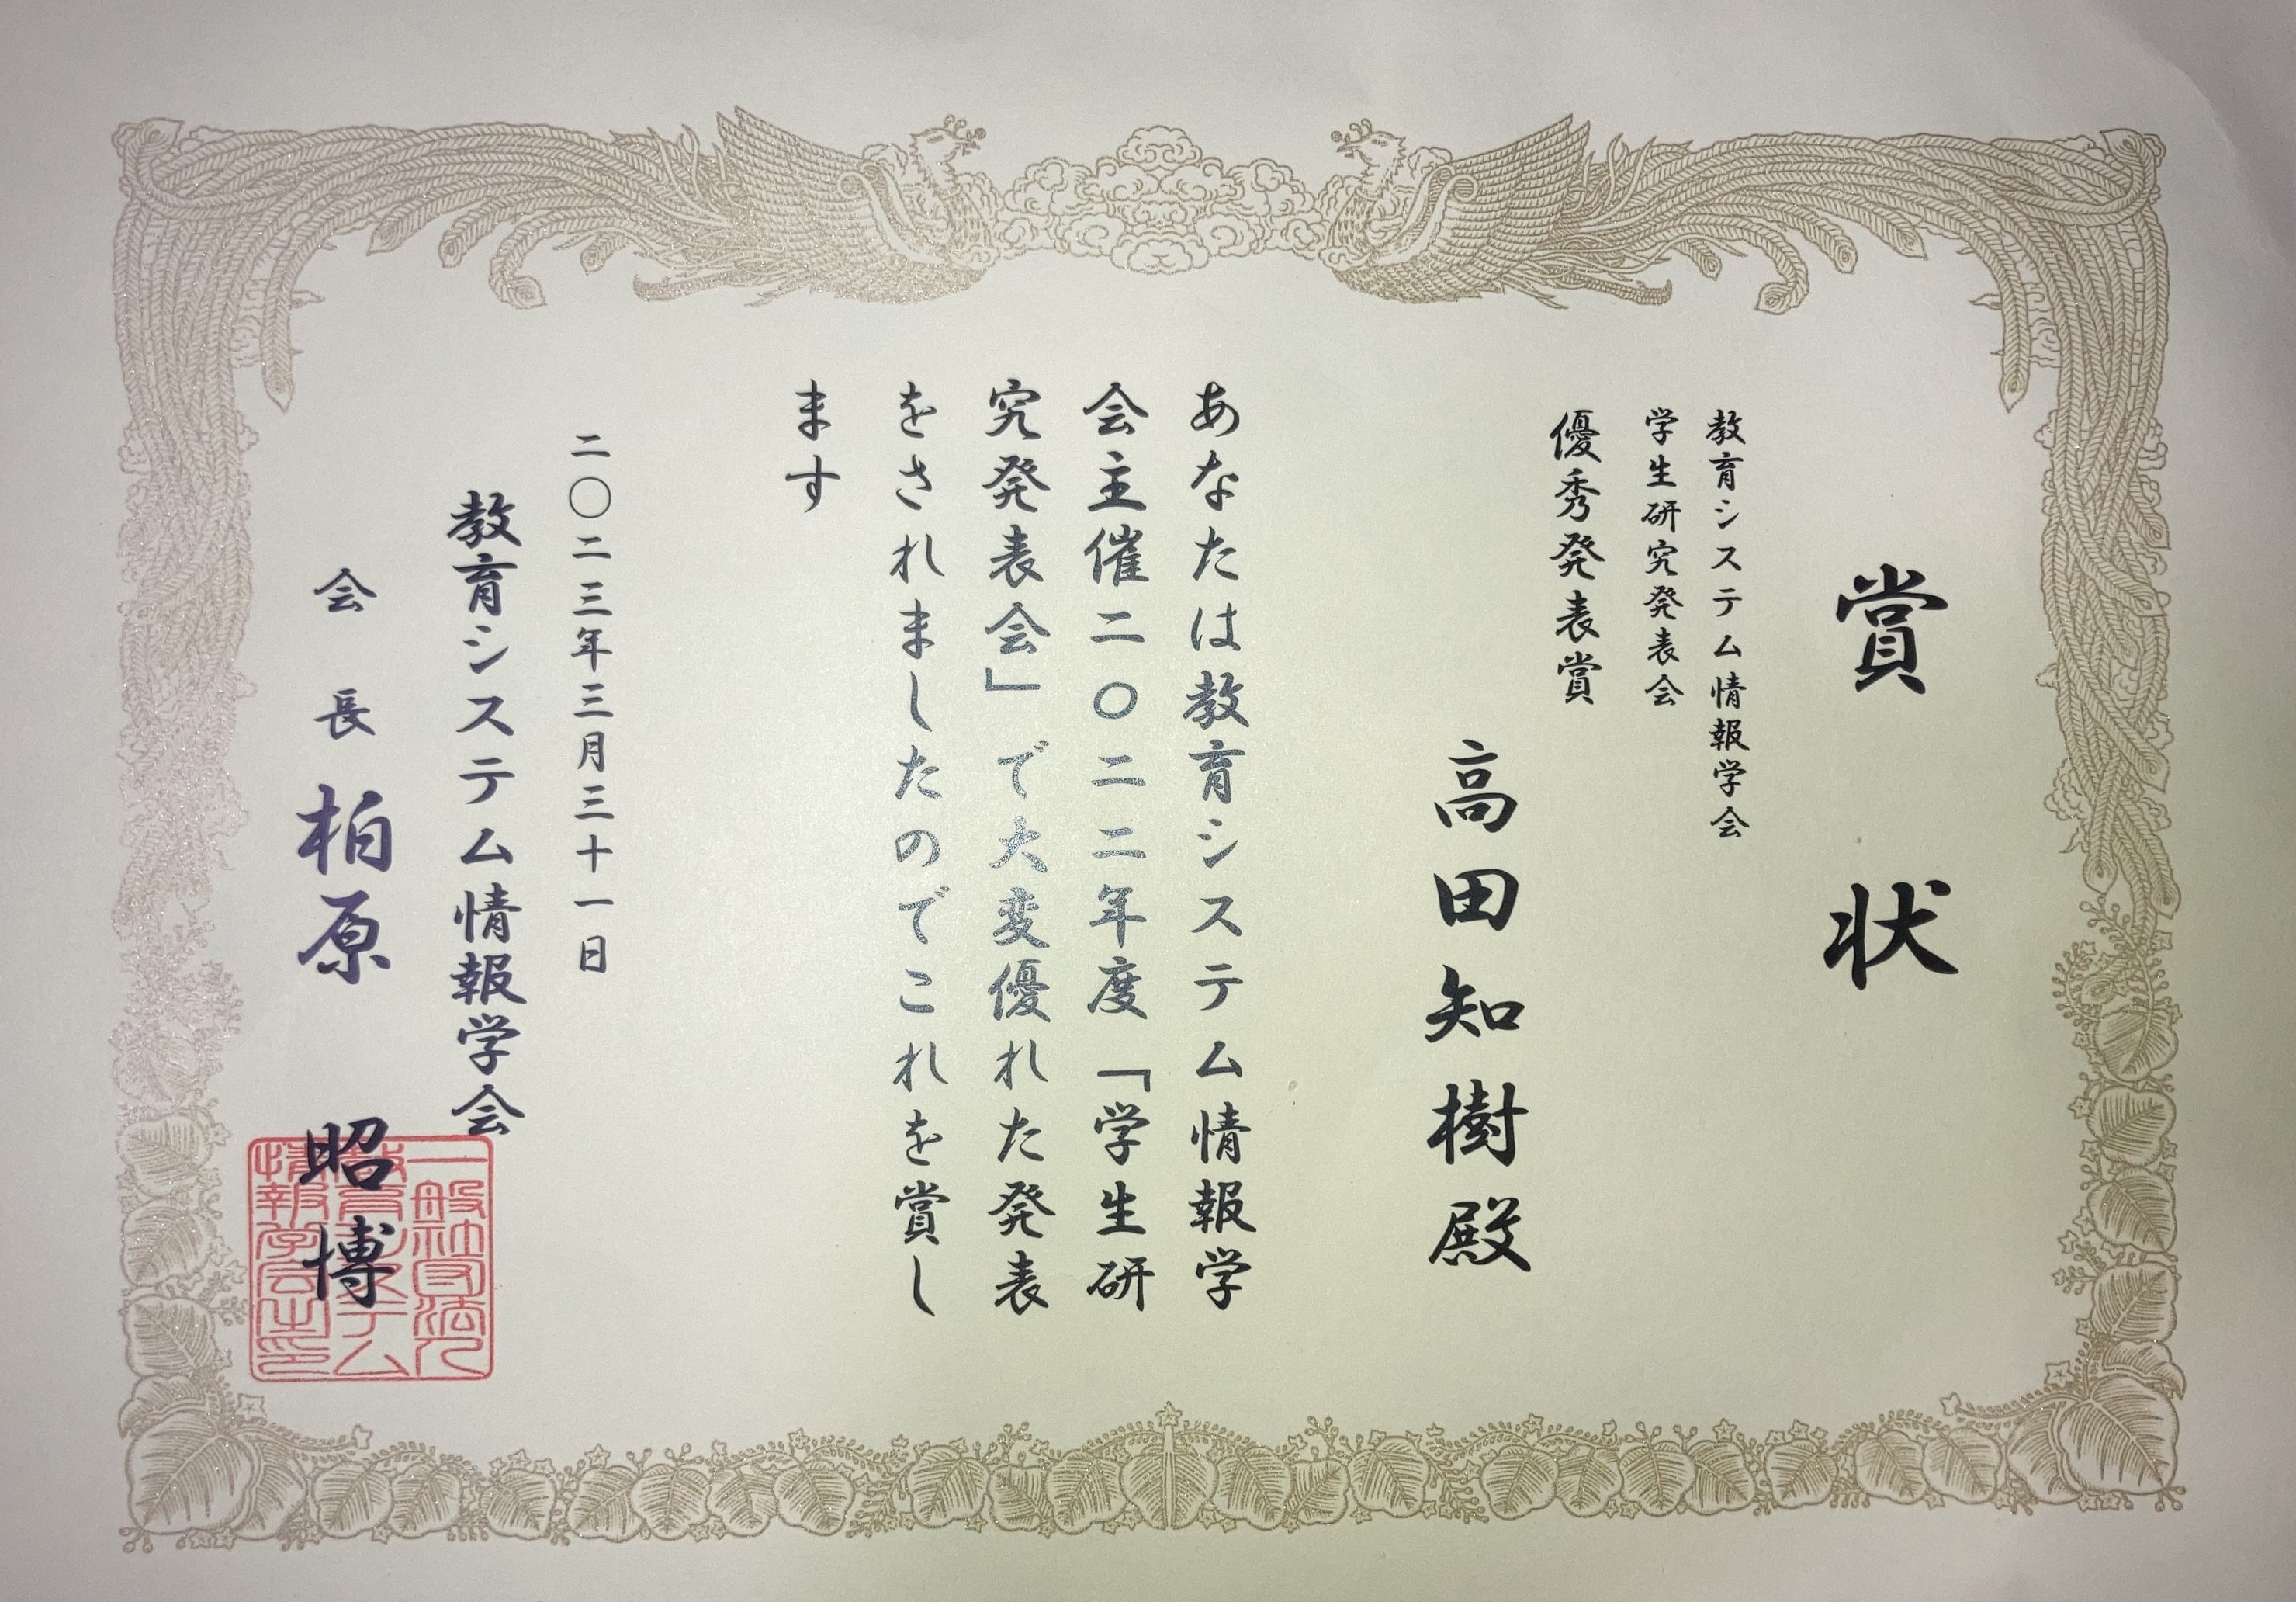 賞状
教育システム情報学会
学生研究発表会
優秀発表賞
高田知樹殿
あなたは教育システム情報学
会主催二〇二二年度「学生研
究発表会」で大変優れた発表
をされましたのでこれを賞し
ます
二〇二三年三月三十一日
教育システム情報学会
会長 柏原 昭博
一般社団法人
教育システム
情報学会之印